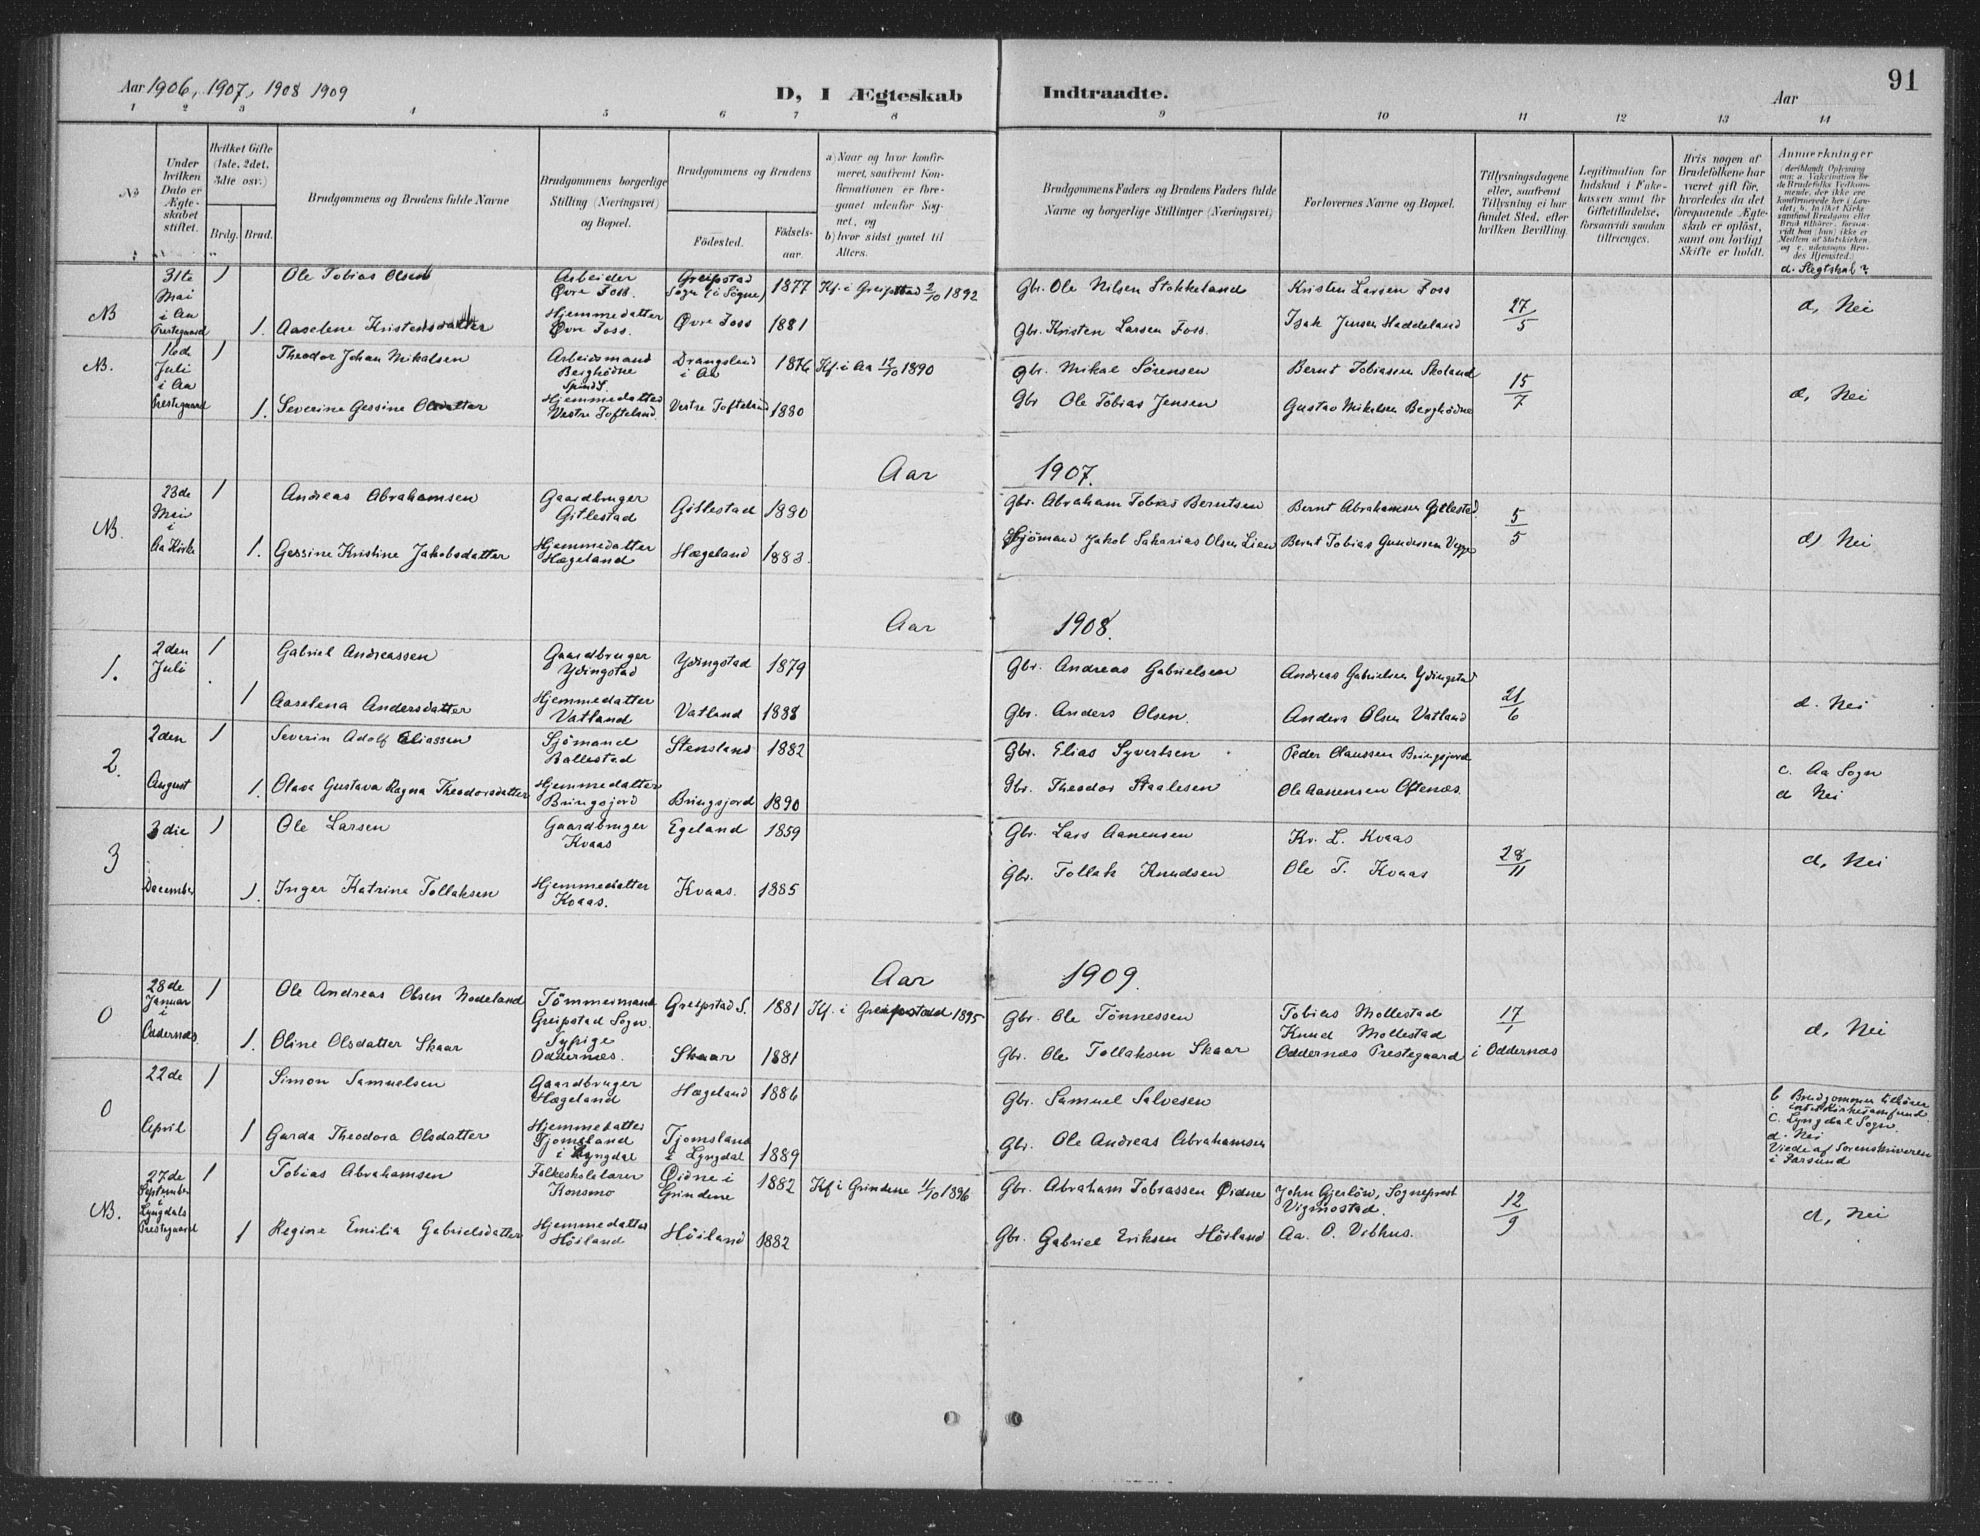 Aar 1906, 1907, 1908 1909
D, I Ægteskab Indtraadte.
Aar
91
1 2 3 4 5 6 7 8 9 10 11 12 13 14
No
Under hvilken Dato er Ægteskabet stiftet.
Hvilket Gifte (1ste, 2det, 3die osv.)
Brdg. Brud.
Brudgommens og Brudens fulde Navne
Brudgommens borgerlige Stilling (Næringsvei) og Bopæl.
Brudgommens og Brudens
Födested.
Födselsaar.
a) Naar og hvor konfirmeret, saafremt Konfirmationen er foregaaet udenfor Sognet, og
b) hvor sidst gaaet til Alters.
Brudgommens Faders og Brudens Faders fulde Navne og borgerlige Stillinger (Næringsvei)
Forlovernes Navne og Bopæl.
Tillysningsdagene eller, saafremt Tillysning ei har fundet Sted, efter hvilken Bevilling.
Legitimation for Indskud i Enkekassen samt for Giftetilladelse, forsaavidt saadan tiltrænges.
Hvis nogen af Brudefolkene har været gift før, hvorledes da det foregaaende Ægteskab er oplöst, samt om lovligt Skifte er holdt.
Anmerkninger
d. Slegtskab?
NB 31te Mai i Aa Prestegaard 1 Ole Tobias Olsen Arbeider Øvre Foss. Greipstad Sogn (i Søgne) 1877 Kf. i Greipstad 2/10 1892 Gbr. Ole Nilsen Stokkeland Kristen Larsen Foss 27/5 d, Nei
1. Aaselene Kristensdatter Hjemmedatter Øvre Foss. Øvre Foss 1881 Gbr. Kristen Larsen Foss. Isak Jensen Haddeland
NB. 16de Juli i Aa Prestegaard 1 Theodor Johan Mikalsen Arbeidsmand Berghödne Spind S. Drangsland i Aa 1876 Kf. i Aa 12/10 1890 Gbr. Mikal Sörensen Bernt Tobiassen Skoland 15/7 d, Nei
1. Severine Gessine Olsdatter Hjemmedatter Vestre Tofteland. Vestre Tofteland 1880 Gbr Ole Tobias Jensen Gustav Mikalsen Berghödne
Aar 1907.
NB. 23de Mai i Aa Kirke 1 Andreas Abrahamsen Gaardbruger Gitlestad Gitlestad 1880 Gbr. Abraham Tobias Berntsen Bernt Abrahamsen Gitlestad 5/5 d) Nei
1. Gessine Kristine Jakobsdatter Hjemmedatter Hægeland Hægeland 1883. Sjömand Jakob Sakarias Olsen Lien Bernt Tobias Gundersen
Aar 1908.
1. 2den Juli 1 Gabriel Andreassen Gaardbruger Ydingstad Ydingstad 1879 Gbr. Andreas Gabrielsen Andreas Gabrielsen Ydingstad 21/6 d. Nei
1 Aaselena Andersdatter Hjemmedatter Vatland Vatland 1888 Gbr. Anders Olsen. Anders Olsen Vatland
2. 2den August 1 Severin Adolf Eliassen Sjömand Ballestad Stensland 1882 Gbr. Elias Syvertsen Peder Olaussen Bringsjord c. Aa Sogn
1. Olava Gustava Ragna Theodorsdatter Hjemmedatter Bringsjord Bringsjord 1890 Gbr. Theodor Staalesen Ole Aanensen Oftenæs. d Nei
3 3die December 1 Ole Larsen Gaardbruger Kvaas Egeland 1859 Gbr. Lars Aanensen Kr. L. Kvaas 28/11 d, Nei
1. Inger Katrine Tollaksen Hjemmedatter Kvaas. Kvaas. 1885 Gbr. Tollak Knudsen Ole T. Kvaas
Aar 1909.
0 28de Januar i Oddernæs. 1 Ole Andreas Olsen Nodeland Tömmermand Greipstad Sogn. Greipstad S. 1881 Kf. i Greipstad 1895 Gbr. Ole Tönnessen Tobias Mollestad 17/1 d, Nei
1. Oline Olsdatter Skaar Sypige Oddernæs. Skaar 1881 Gbr. Ole Tollaksen Skaar Knud Mollestad Oddernæs Prestegaard i Oddernæs
0 22de April 1 Simon Samuelsen Gaardbruger Hægeland Hægeland 1886 Gbr. Samuel Salvesen b Brudgommen tilhører intet Kirkesamfund.
1 Garda Theodora Olsdatter Hjemmedatter Tjomsland i Lyngdal Tjomsland i Lyngdal 1889 Gbr. Ole Andreas Abrahamsen c. Lyngdal Sogn. d. Nei Viede af Sorenskriveren i Farsund
NB. 27de September i Lyngdals Prestegaard 1 Tobias Abrahamsen Folkeskolelærer Konsmo Øidne i Grindene 1882 Kf i Grindene 11/10 1896 Gbr. Abraham Tobiassen Øidne John Gjerlöw, Sogneprest Vigmostad. 12/9 d, Nei
1 Regine Emilia Gabrielsdatter Hjemmedatter Höiland Höiland 1882 Gbr. Gabriel Eriksen Höiland Aa. O. Vibhus.